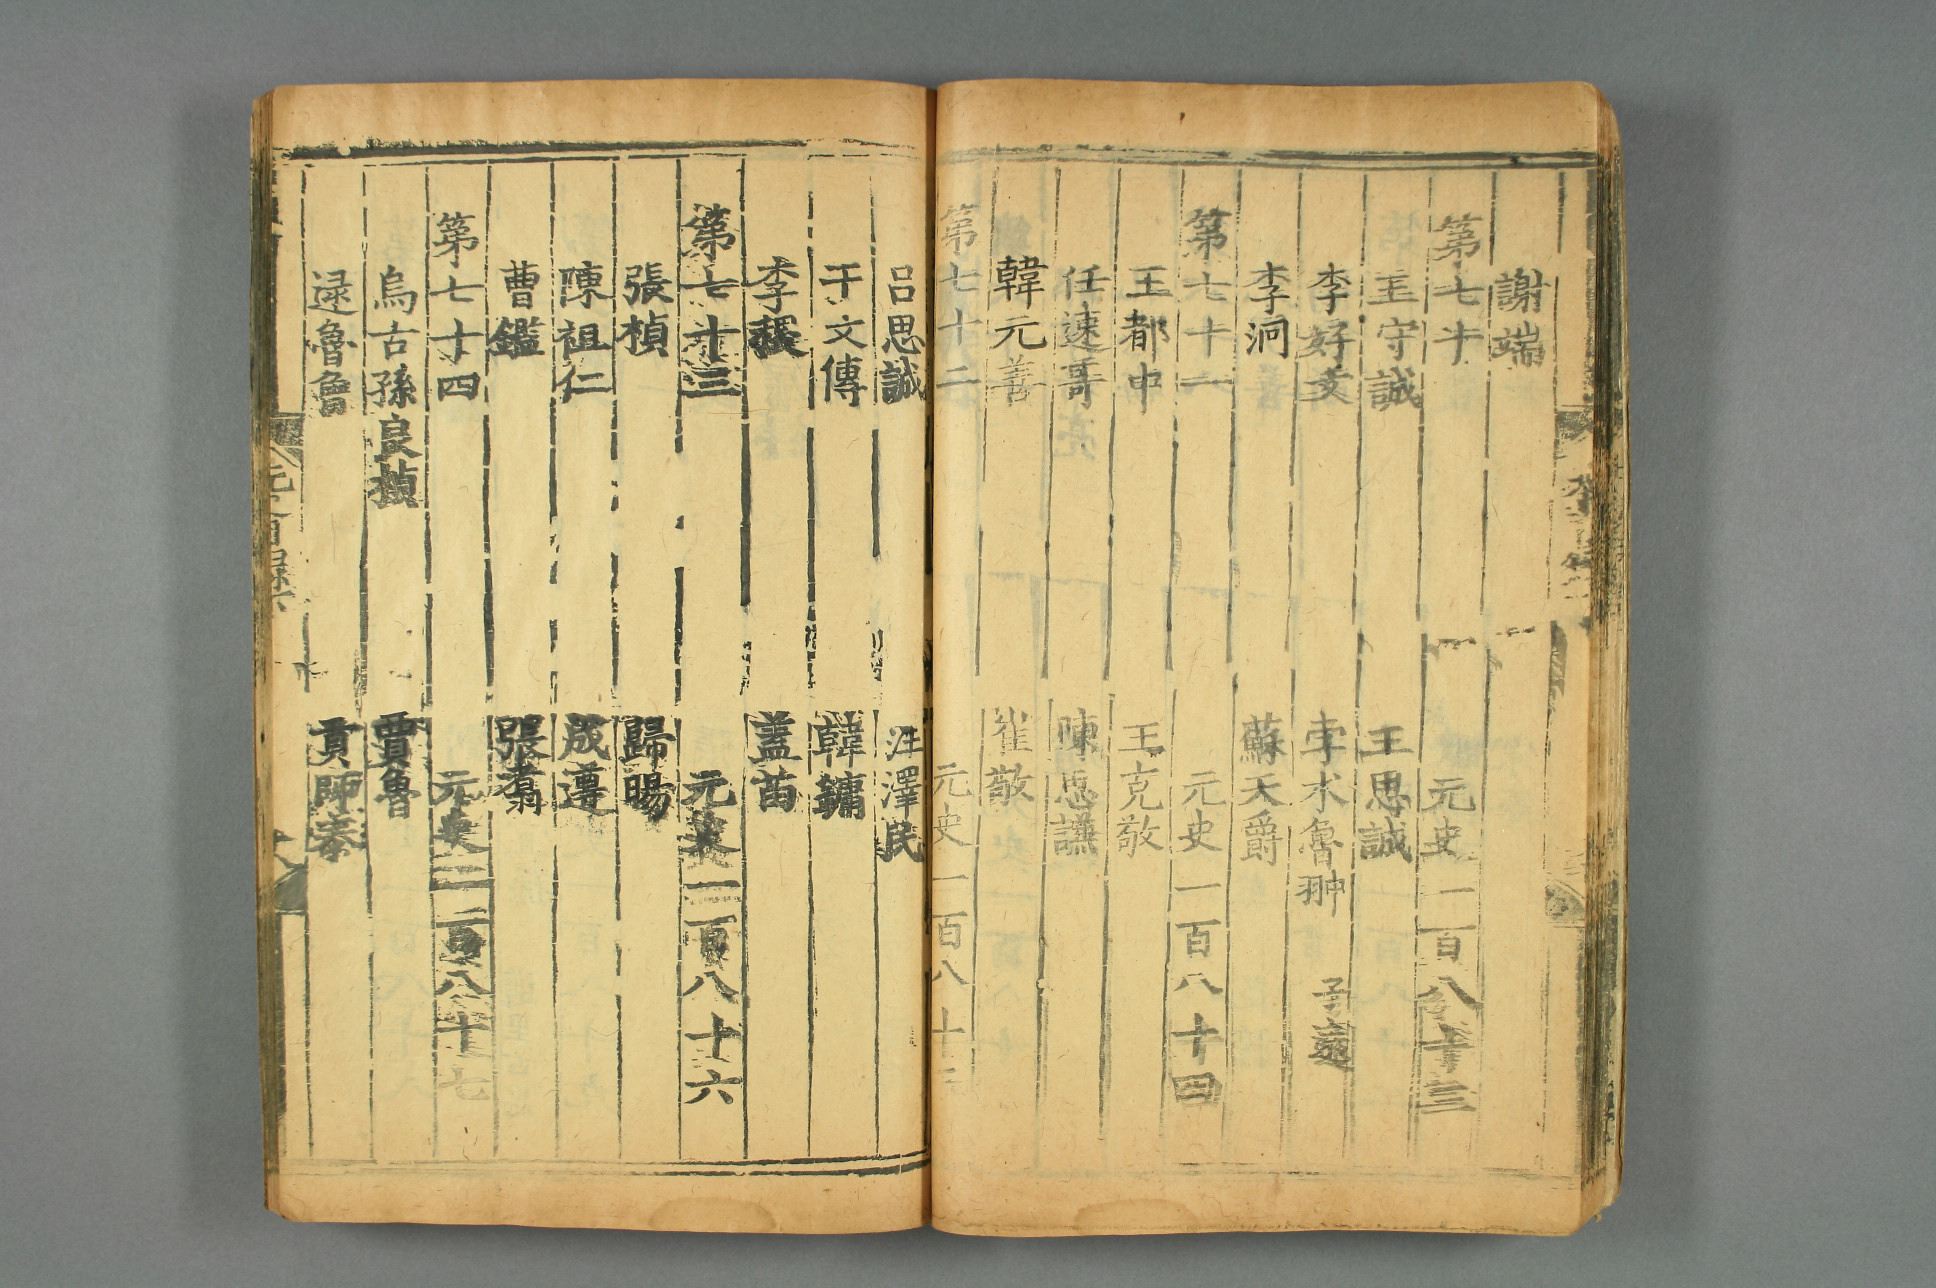 謝端
第七十 元史一百八十三
王守誠 王思誠
李好文 孛术魯翀 子遠
李泂 蘇天爵
第七十一 元史一百八十四
王都中 王克敬
任速哥 陳思謙
韓元善 崔敬
第七十二 元史一百八十五
呂思誠 汪澤民
干文傳 韓鏞
李稷 蓋苗
第七十三 元史一百八十六
張楨 歸暘
陳祖仁 成遵
曹鑑 張翥
第七十四 元史一百八十七
烏古孫良楨 賈魯
逯魯曾 貢師泰